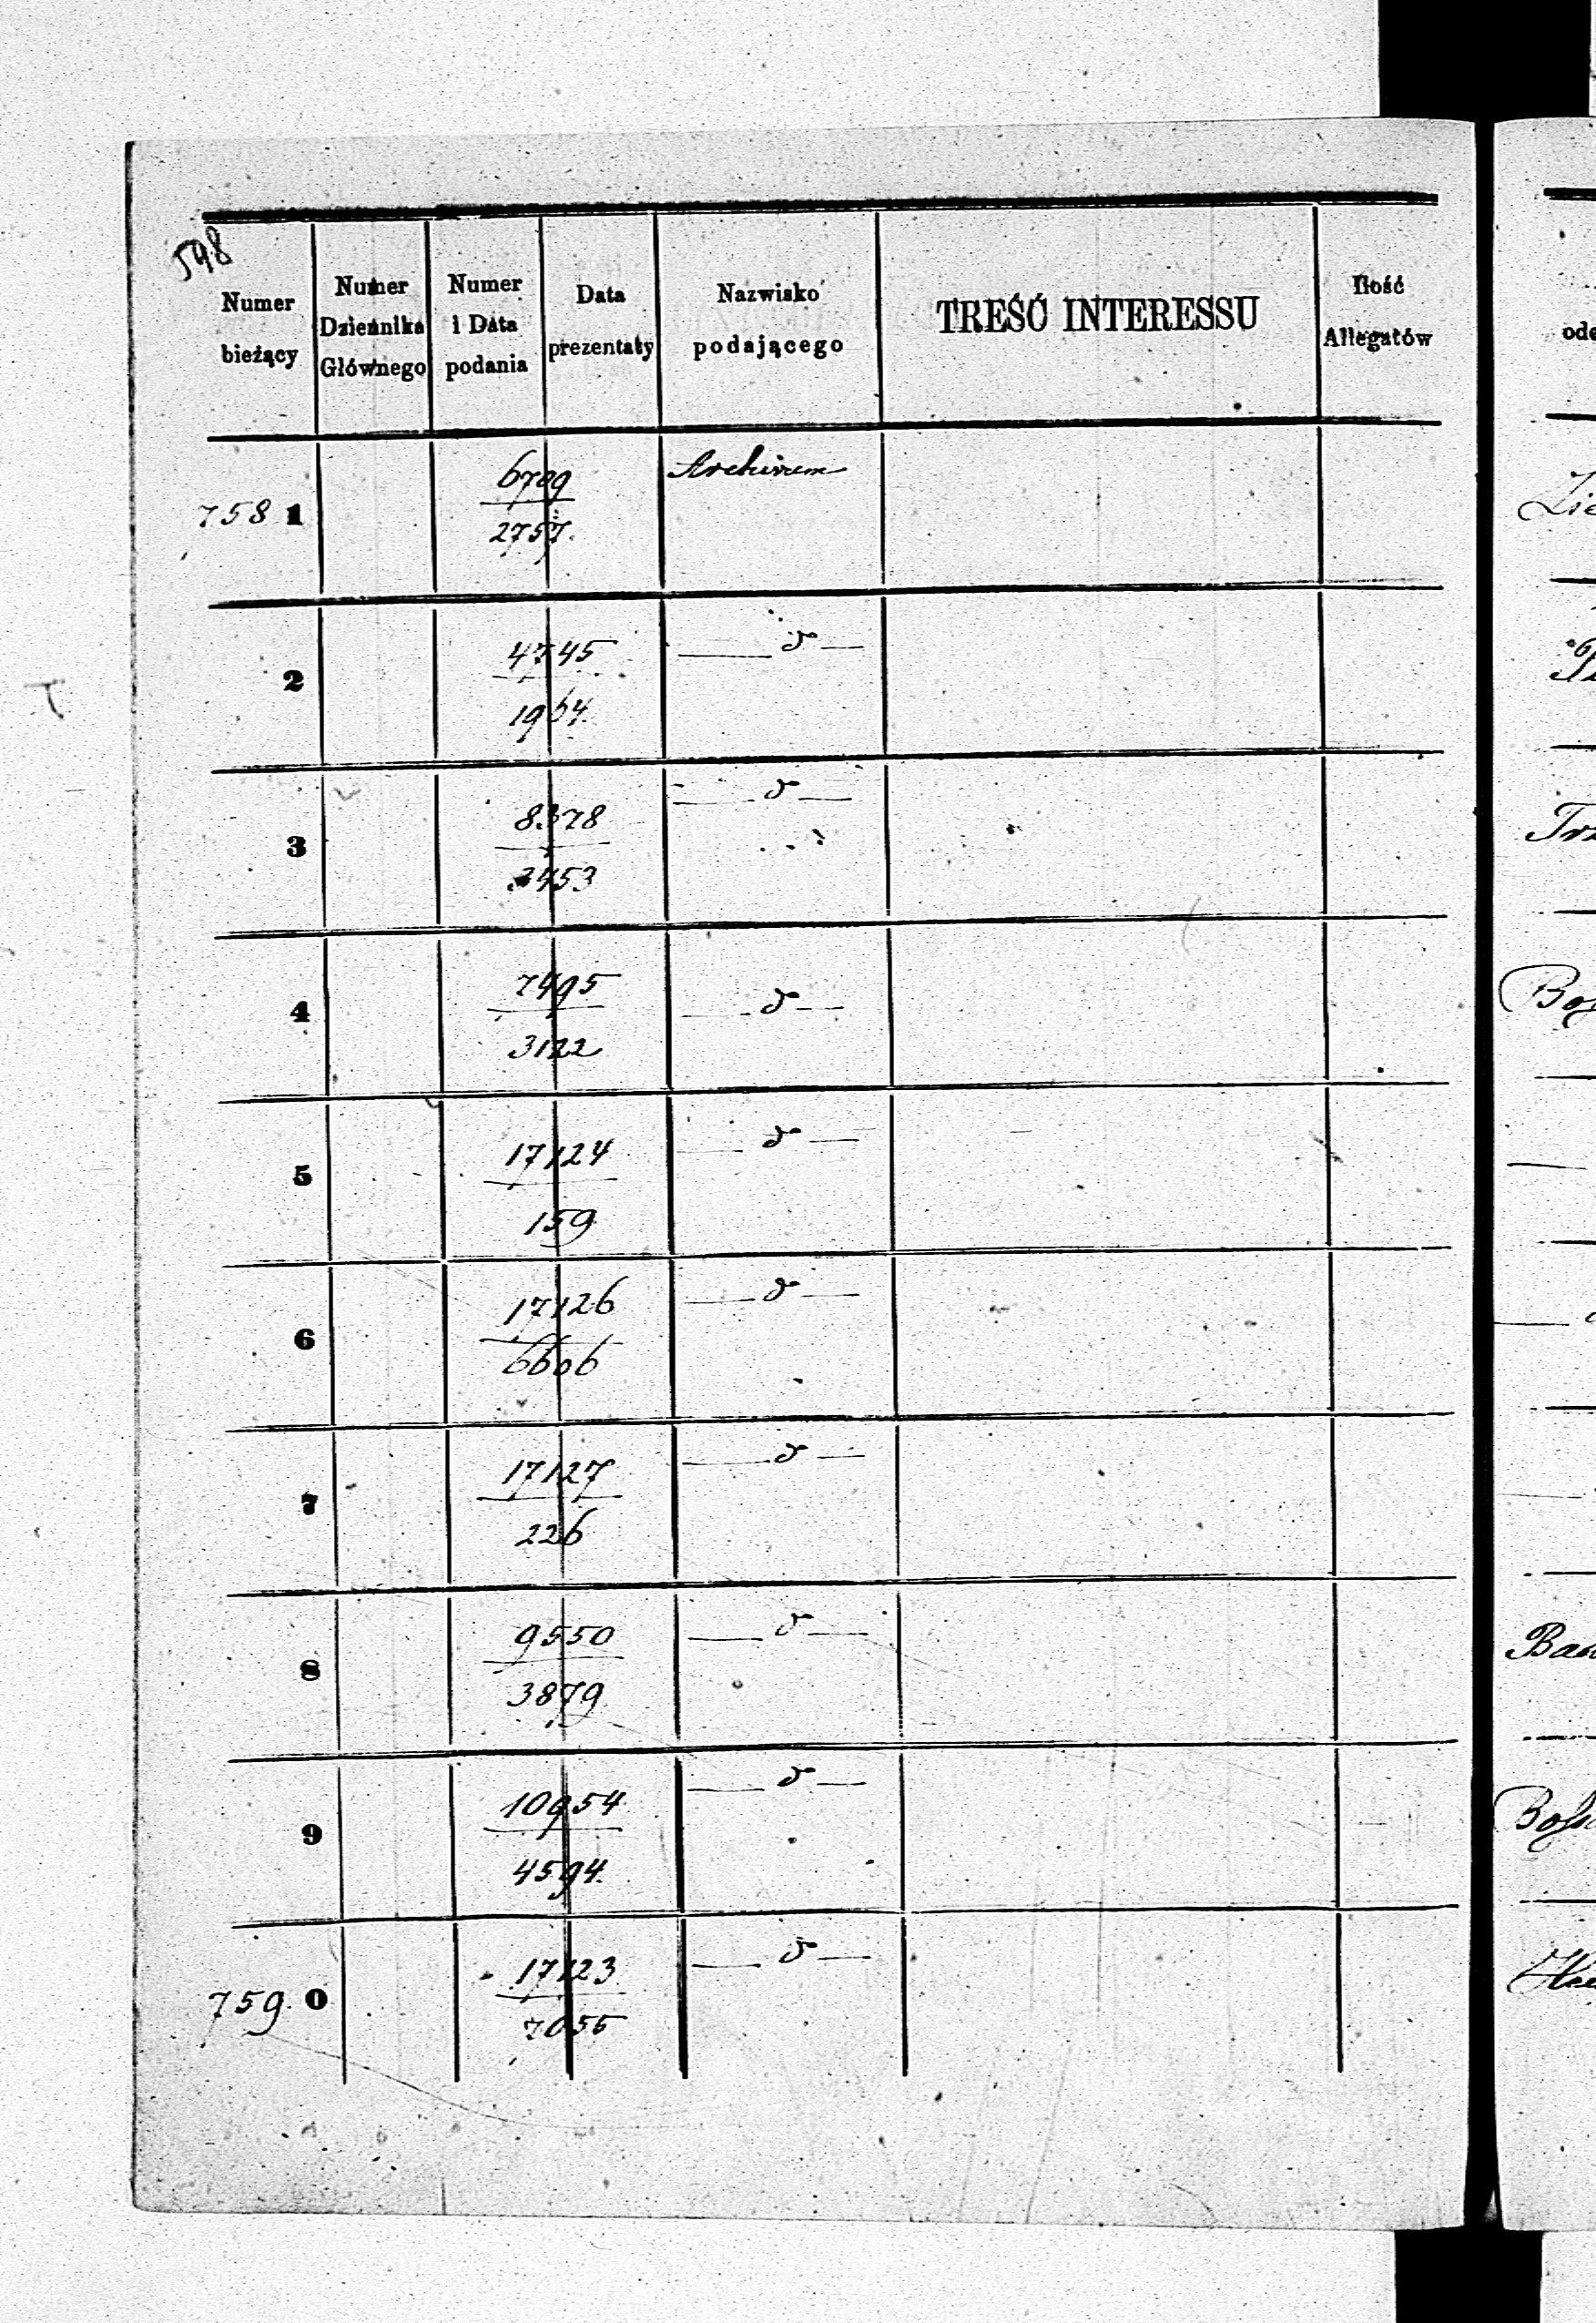 548
Numer bieżący
Numer Dziennika Głównego
Numer i Data podania
Data prezentaty
Nazwisko podającego
TREŚĆ INTERESSU
Ilość Allegatów
758 1 6709 Archiwum
2757.
2 4745 — d —
1964.
3 8378 — d —
3453
4 7495 — d —
3122
5 17124 — d —
159
6 17126 — d —
6606
7 17127 — d —
226
8 9550 — d —
3879
9 10954 — d —
4594.
759 0 17123 — d —
7055